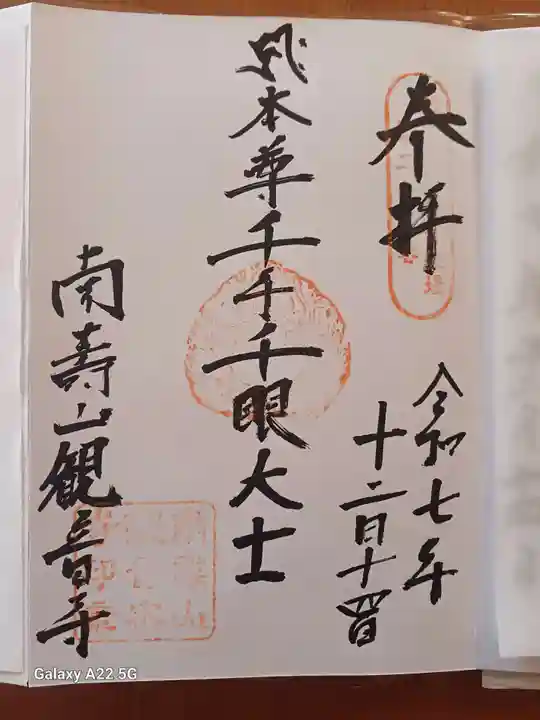 奉拝
令和七年
十二月十四日
本尊千手千眼大士
南壽山観音寺
Galaxy A22 5G